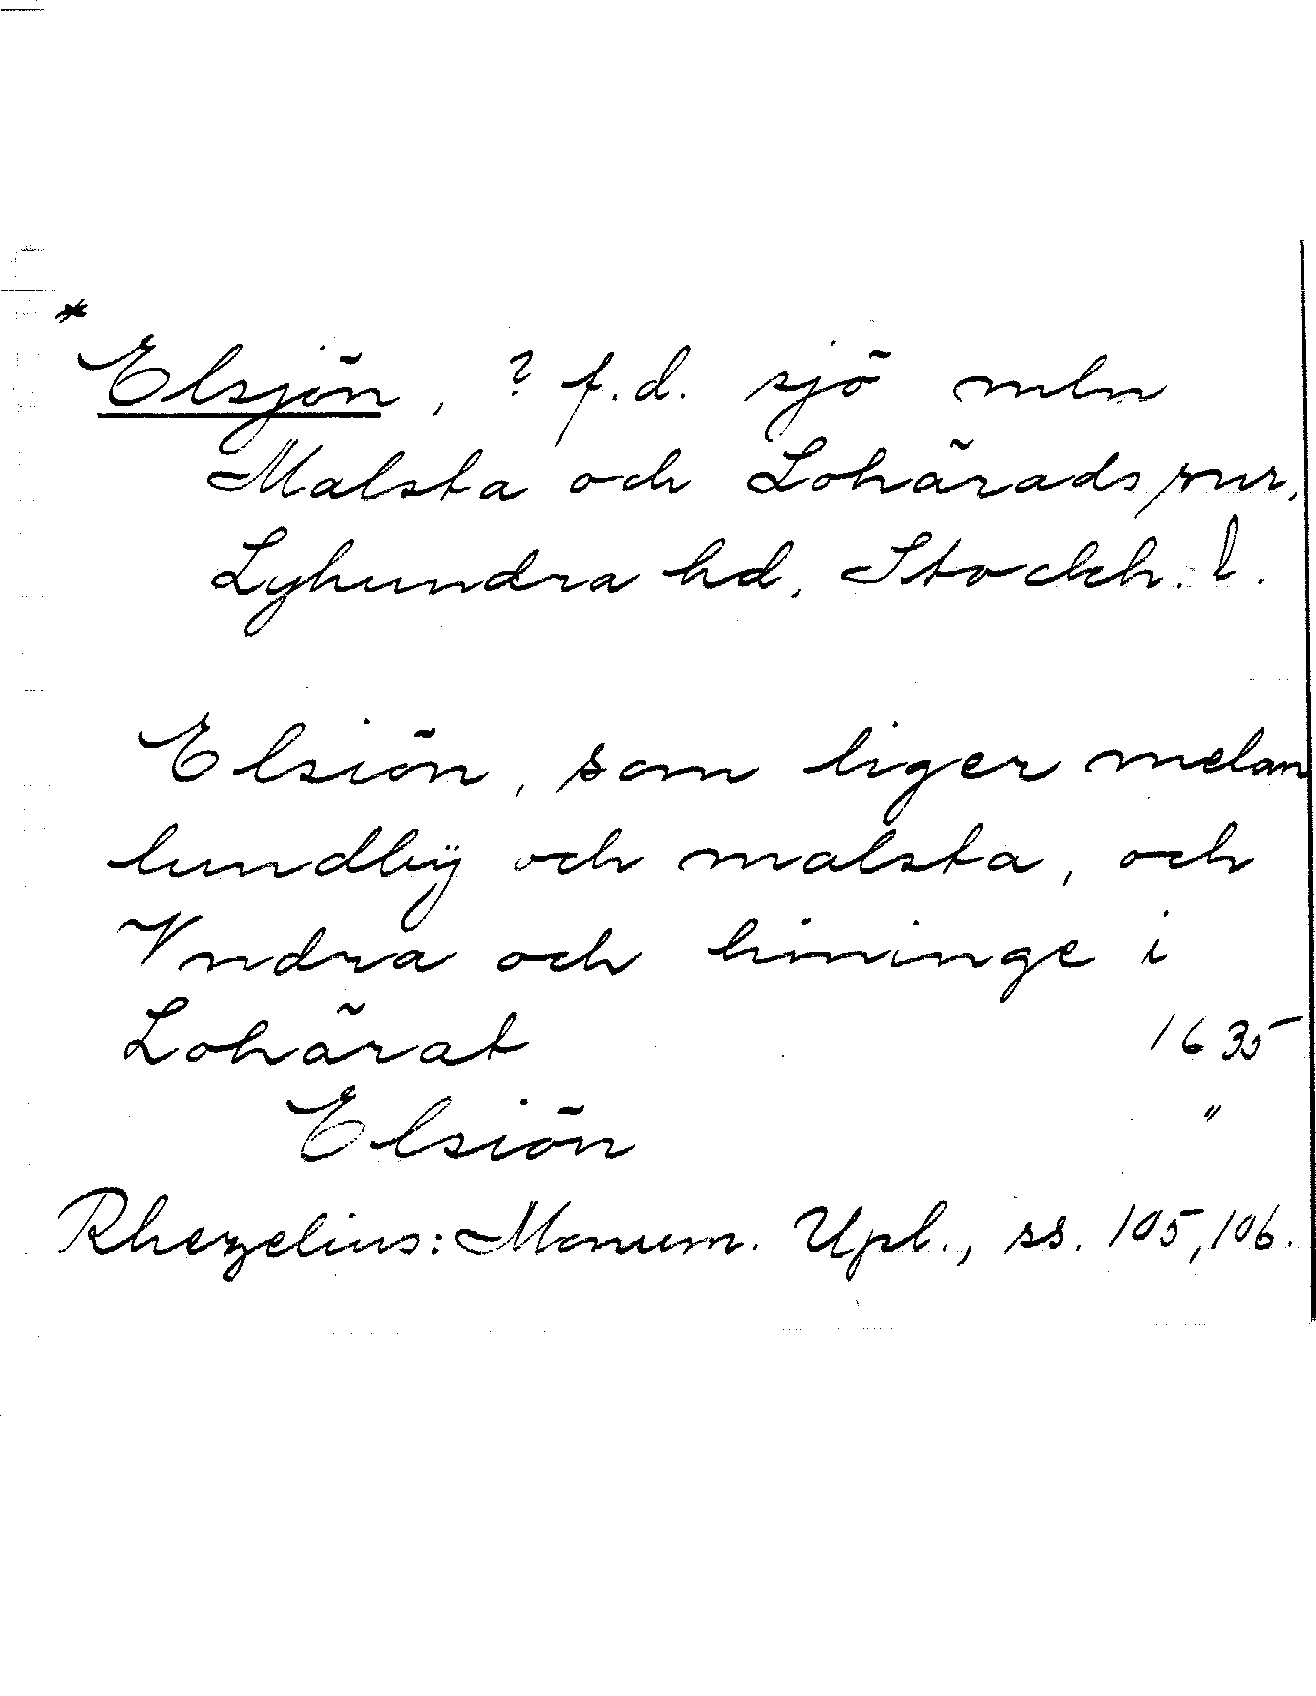 *
Elsjön, ? f.d. sjö mln
Malsta och Lohärads snr,
Lyhundra hd, Stockh. l.
Elsiön, som liger melan
lundbÿ och malsta, och
Vndra och hininge i
Lohärat 1635
Elsiön "
Rhezelius: Monum. Upl., ss. 105, 106.